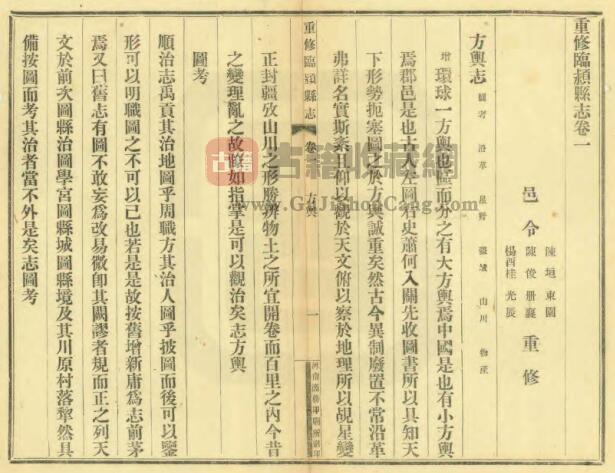 重修臨潁縣志卷一
邑令
陳垣東園
陳俊册襄
楊酉桂光辰
重修
方輿志
圖考 沿革 星野 疆域 山川 物產
增環球一方輿也區而分之有大方輿焉中國是也有小方輿
焉郡邑是也古人左圖右史蕭何入關先收圖書所以具知天
下形勢扼塞圖之於方輿誠重矣然古今異制廢置不常沿革
弗詳名實斯紊且仰以觀於天文俯以察於地理所以覘星變
重修臨潁縣志
卷一
方輿
一
正封疆攷山川之形勝辨物土之所宜開卷而百里之內今昔
之變理亂之故瞭如指掌是可以觀治矣志方輿
圖考
順治志禹貢其治地圖乎周職方其治人圖乎披圖而後可以鑒
形可以明職圖之不可以已也若是是故按舊增新庸為志前茅
焉又曰舊志有圖不敢妄為改易微卽其闕謬者規而正之列天
文於前次圖縣治圖學宮圖縣城圖縣境及其川原村落犂然具
備按圖而考其治者當不外是矣志圖考
古籍
古籍收藏網
www.GuJiShouCang.com